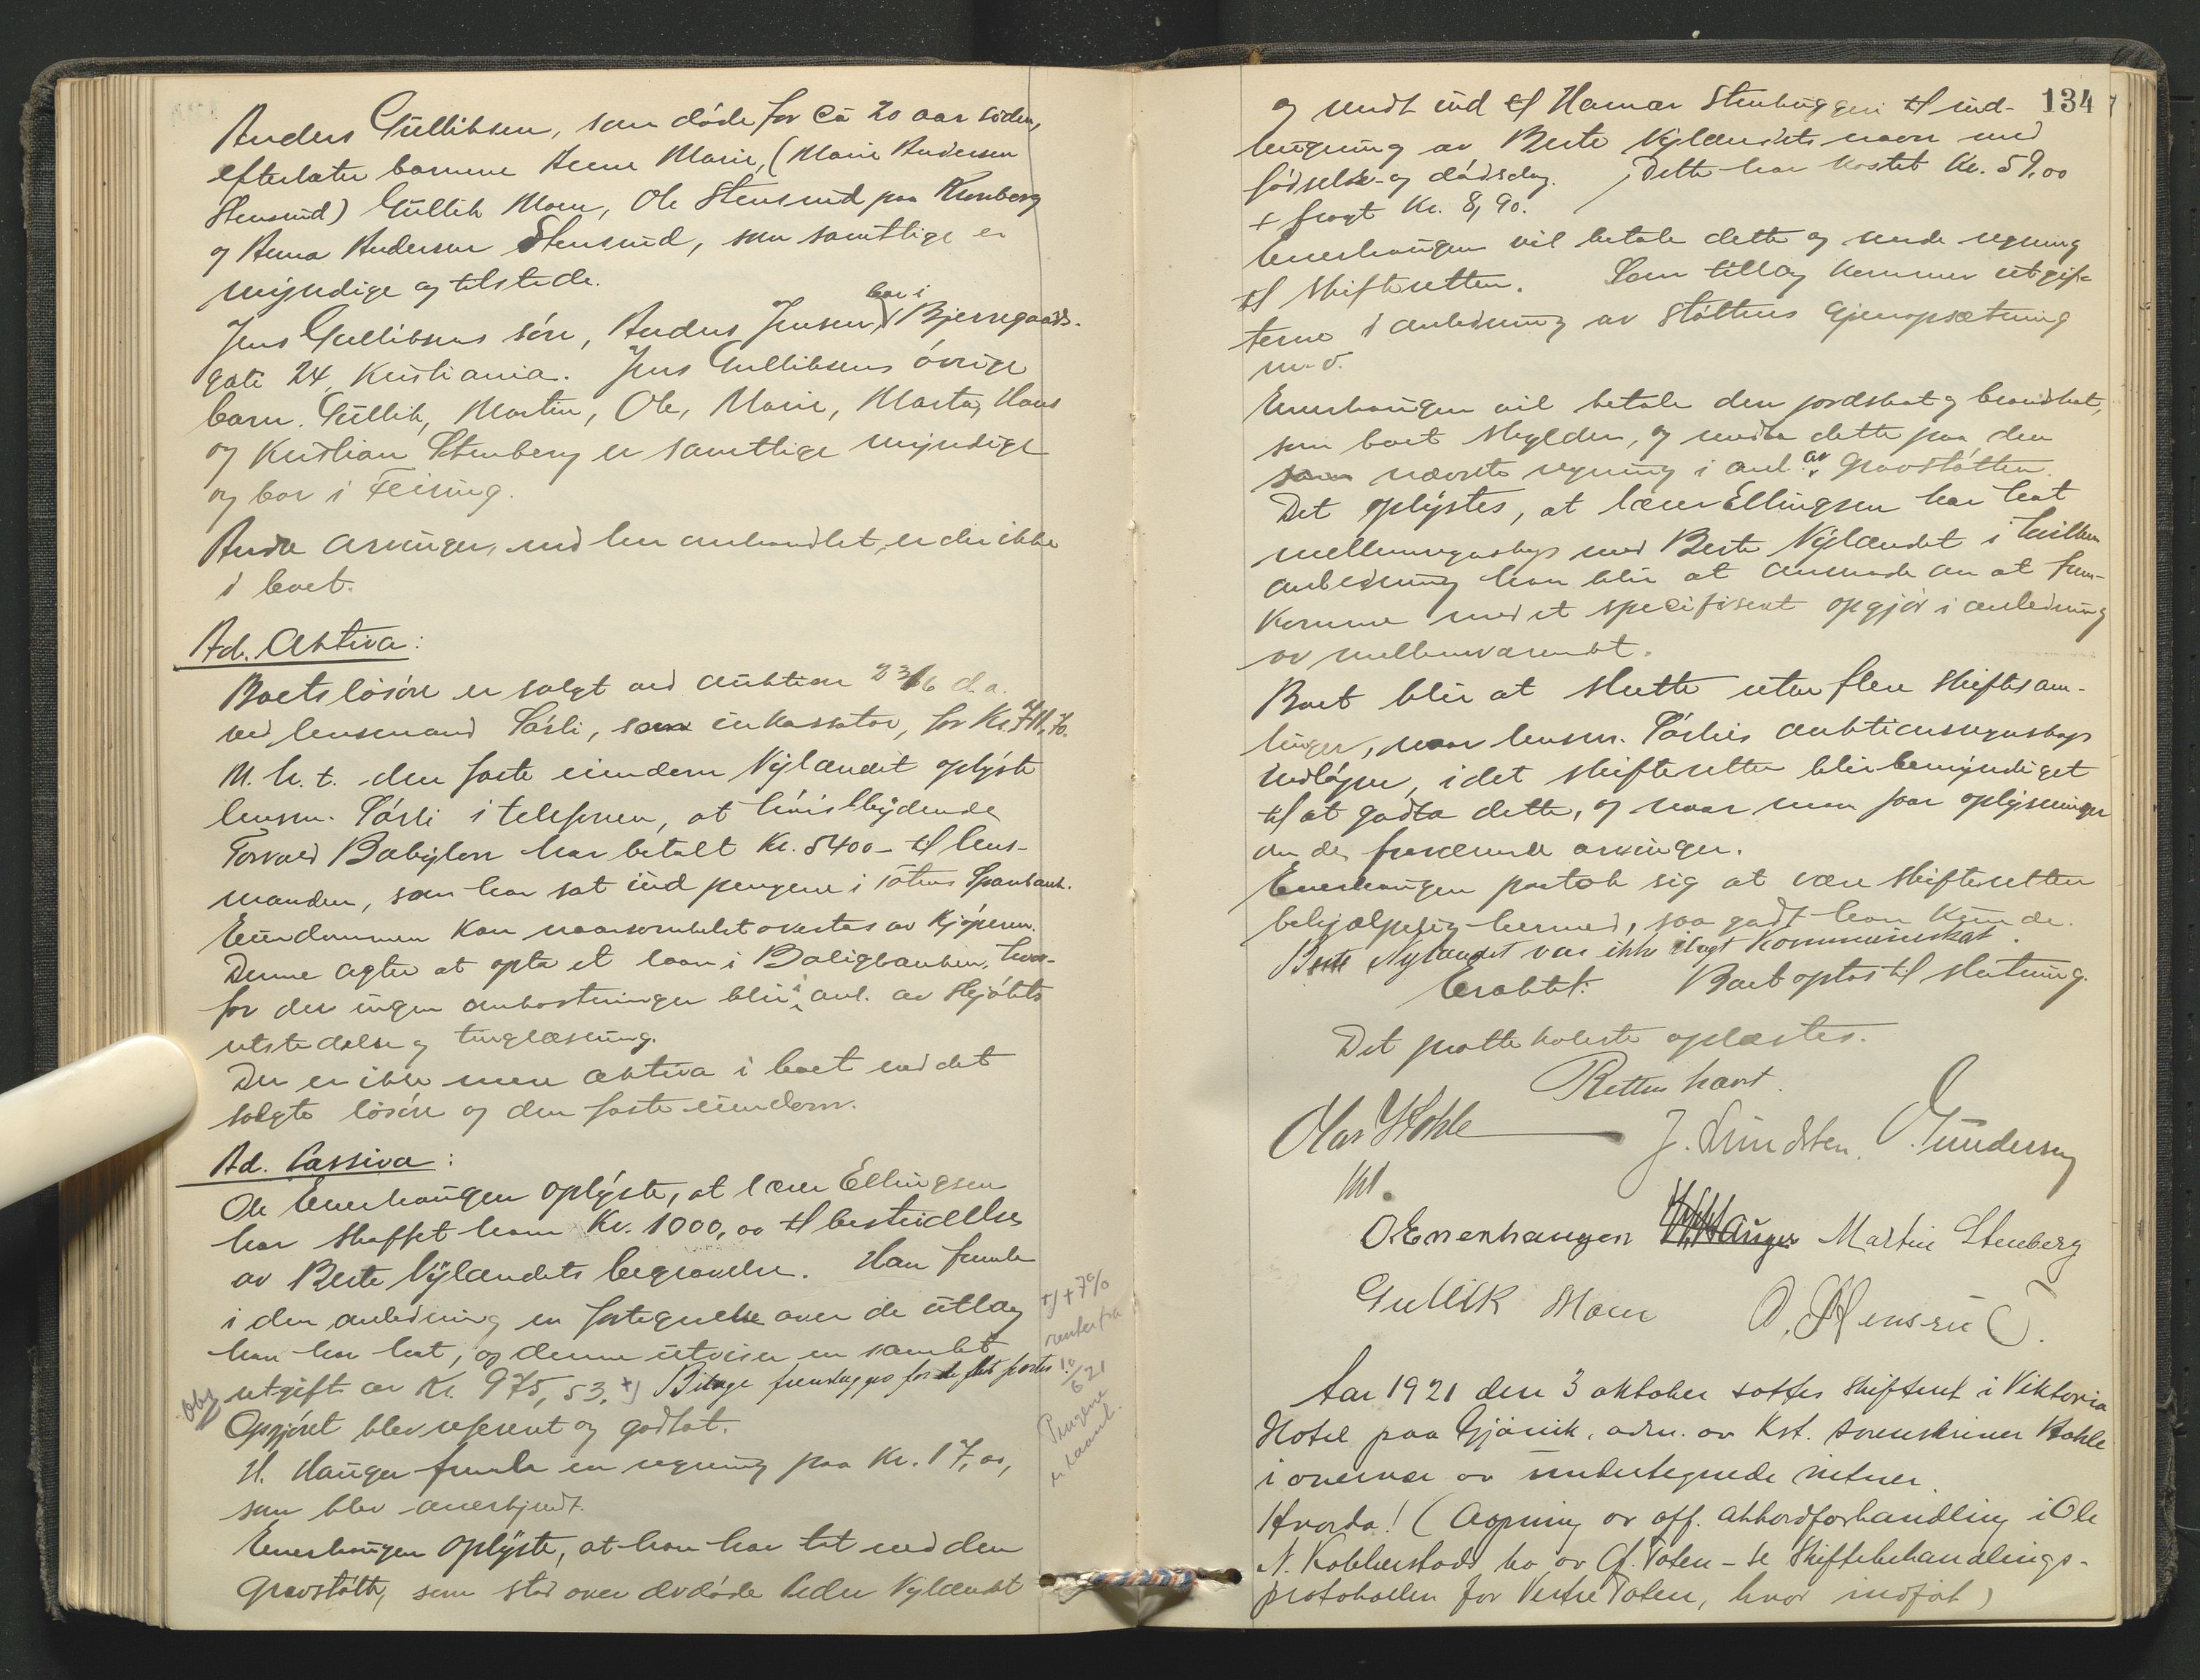 Anders Gulliksen, som döde for ca 20 aar siden,
efterlater barnene Anne Marie, (Marie Andersen
Stensrud) Gullik Moen, Ole Stensrud paa Kronberg
og Anna Andersen Stensrud, som samtlige er
myndige og tilstede.
Jens Gulliksens sön, Anders Jensen, bor i Bjerregaards-
gate 24, Kristiania. Jens Gulliksens övrige
barn. Gullik, Martin, Ole, Marie, Marta, Hans
og Kristian Stenberg er samtlige myndige
og bor i Feiring.
Andre arvinger, end her omhandlet, er der ikke
i boet.
Ad. Aktiva:
Boets lösöre er solgt ved auktion 23/6 d.a.
ved lensmand Sörli, som inkassator, for Kr. 711,70.
M.h.t. den faste eiendom Nylændet oplyste
lensm. Sörli i telefonen, at höistbydende
Torvald Babylon har betalt Kr. 5400- til lens-
manden, som har sat ind pengene i Totens Sparebank.
Eiendommen kan naarsomhelst overtas av kjöperen.
Denne agter at opta et laan i Boligbanken, hvor-
for der ingen omkostninger blir i anl. av skjötets
utstedelse og tinglæsning.
Der er ikke mere aktiva i boet end det
solgte lösöre og den faste eiendom.
Ad. Passiva:
Ole Enerhaugen oplyste, at lærer Ellingsen
har skaffet ham Kr. 1000,00 til bestridelse
av Berte Nylændets begravelse. Han fremla
i den anledning en fortegnelse over de utlæg
han har hat, og denne utviser en samlet
utgift av Kr. 975,53. +) Bilage fremlægges for de fleste poster.
Opgjöret blev referert og godtat.
H. Hauger fremla en regning paa Kr. 17,00,
som blev anerkjendt.
Enerhaugen oplyste, at han har tat ned den
gravstötte, som stod over avdöde Peder Nylændet
Obs
+) + 7%
renter fra
10/6 21
Pengene
er laant.
134
og sendt ind til Hamar Stenhuggeri til ind-
hugning av Berte Nylændets navn med
födsels- og dödsdag. Dette har kostet Kr. 59,00
+ fragt Kr. 8,90.
Enerhaugen vil betale dette og sende regning
til skifteretten. Som tillæg kommer utgif-
terne i anledning av stöttens gjenopsætning
m.v.
Enerhaugen vil betale den jordskat og brandskat,
som boet skylder, og medta dette paa den
som nævnte regning i anl. av gravstötten.
Det oplystes, at lærer Ellingsen har hat
mellemregnskap med Berte Nylændet i hvilken
anledning han blir at anmode om at frem-
komme med et specifisert opgjör i anledning
av mellemværendet.
Boet blir at slutte uten flere skiftesam-
linger, naar lensm. Sörlies auktionsregnskap
medfölger, idet skifteretten blir bemyndiget
til at godta dette, og naar man faar oplysninger
om de fraværende arvinger.
Enerhaugen paatok sig at være skifteretten
behjælpelig hermed, saa godt han kunde.
Berte Nylændet var ikke ilagt kommuneskat.
Eraktet: Boet optas til slutning.
Det protokollerte oplæstes.
Retten hævet.
Olav Stohle
kst.
J. Lundsten. O. Gundersen
O. Enerhaugen H. Hauger Martin Stenberg
Gullik Moen
Aar 1921 den 3 oktober sattes skifteret i Viktoria
Hotel paa Gjövik, adm. av Kst. sorenskriver Stohle
i overvær av undertegnede vidner.
Hvorda! (Aapning av off. akkordforhandling i Ole
N. Kobberstads bo av Ø. Toten - se Skiftebehandlings-
protokollen for Vestre Toten, hvor indfört)